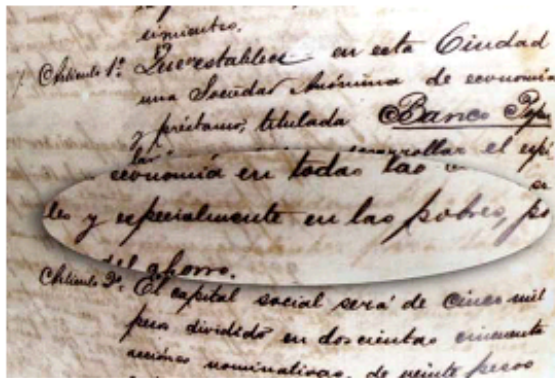 siguientes.
Artículo 1º. Que establece en esta Ciudad
una Sociedad Anónima de economía
y préstamos, titulada Banco Popu
lar desarrollar el espí
economía en todas las
les y especialmente en las pobres, po
del ahorro.
Artículo 2º. El capital social será de cinco mil
pesos dividido en doscientas cincuenta
acciones nominativas, de veinte pesos